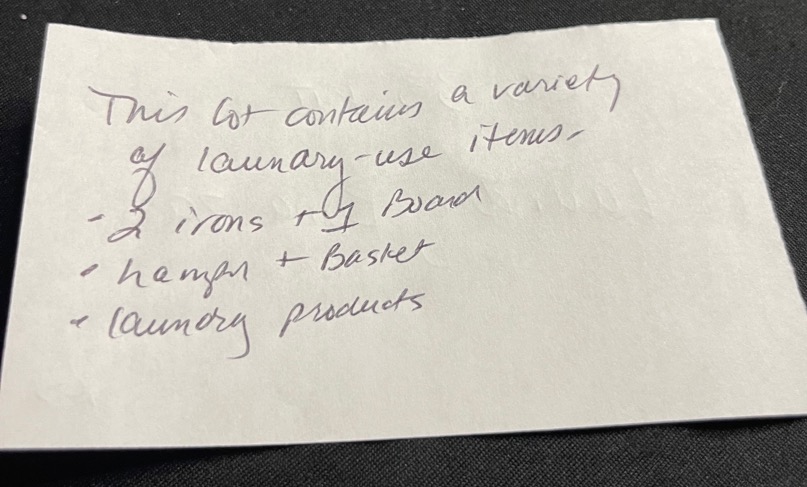 This lot contains a variety
of laundry-use items.
- 2 irons + 1 Board
• hamper + Basket
• laundry products